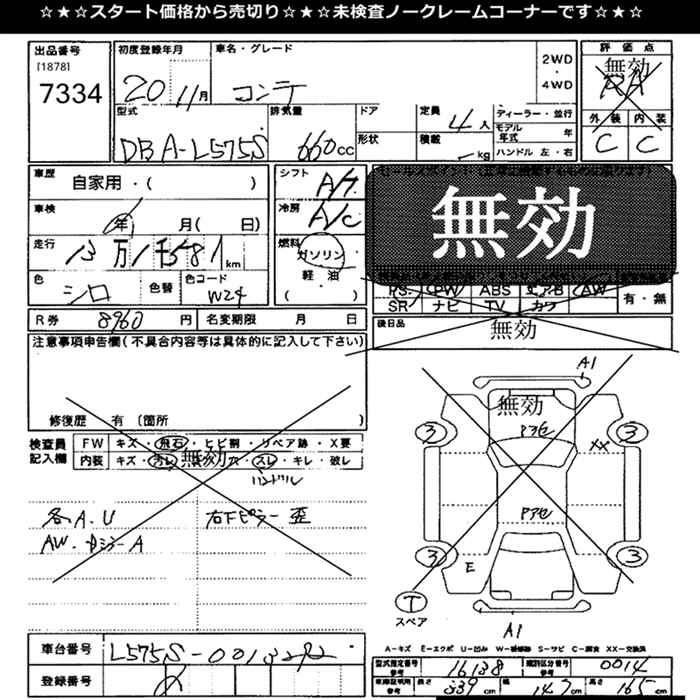 ☆★☆★スタート価格から売切り☆★☆★未検査ノークレームコーナーです☆★☆
出品番号 初度登録年月 車名・グレード 2WD・4WD 評価点
[1878]
7334 20 11月 コンテ 無効
型式 排気量 ドア 定員 ディーラー・並行 外装 内装
DBA-L575S 660cc 形状 積載 4人 モデル年式 年 C C
kg ハンドル 左・右
車歴 自家用・( ) シフト A/T
無効
車検 年 月( 日) 冷房 A/C
走行 13万1千581km 燃料 ガソリン
軽・油
( )
色 シロ 色替 色コード W24
PS PW ABS エアB AW 有・無
SR ナビ TV カワ
R券 8960円 名変期限 月 日 後日品 無効
注意事項申告欄(不具合内容等は具体的に記入して下さい)
修復歴 有 〔箇所
検査員記入欄 FW キズ・飛石・ヒビ割・リペア跡・X要
内装 キズ・汚レ・無効穴・スレ・キレ・破レ
ハンドル
各A.U 右下ピラー歪
AW.カラーA
A1
無効
3 アアセ 3
XX
アアセ
3 3
E
T
スペア
A1
A-キズ E-エクボ U-凹み W-補修跡 S-サビ C-腐食 XX-交換済
車台番号 L575S-0013292
型式指定番号 参考 16138 類別区分番号 参考 0014
登録番号
車庫証明用 参考 長さ 339cm 幅 147cm 高さ 165cm